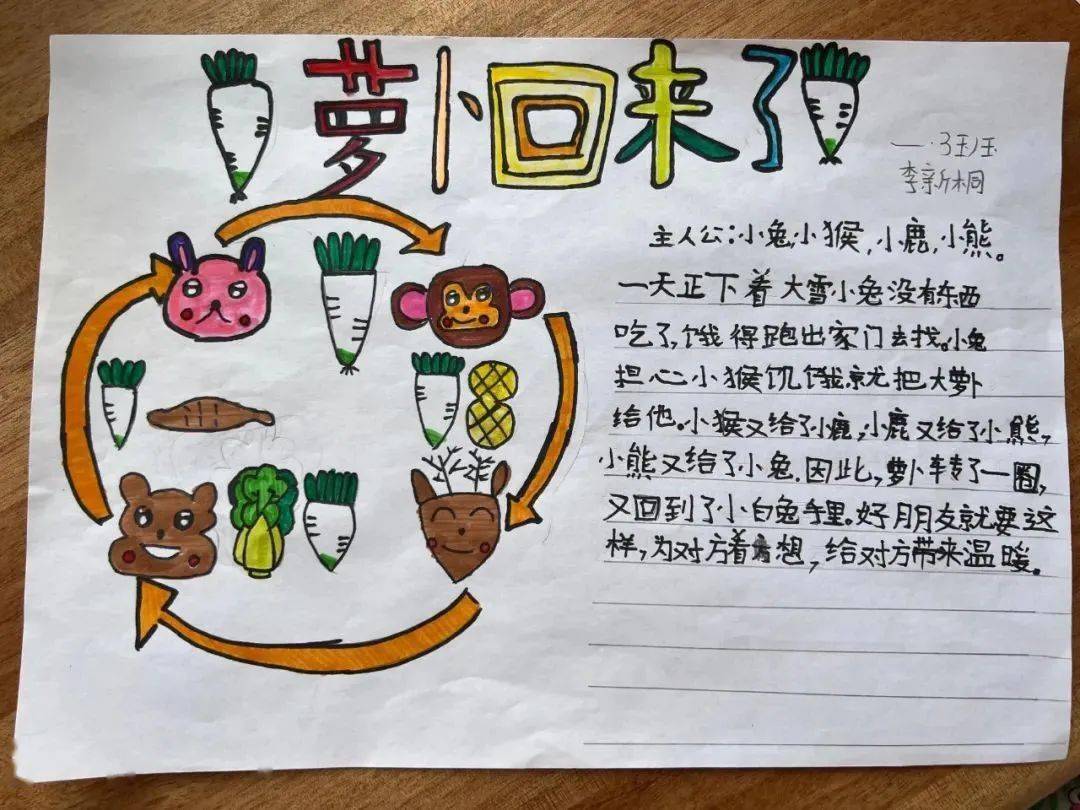 萝卜回来了
一.3班
李新桐
主人公:小兔,小猴,小鹿,小熊。
一天正下着大雪小兔没有东西
吃了,饿得跑出家门去找。小兔
担心小猴饥饿就把大萝卜
给他。小猴又给了小鹿,小鹿又给了小熊,
小熊又给了小兔。因此,萝卜转了一圈,
又回到了小白兔手里。好朋友就要这
样,为对方着想,给对方带来温暖。